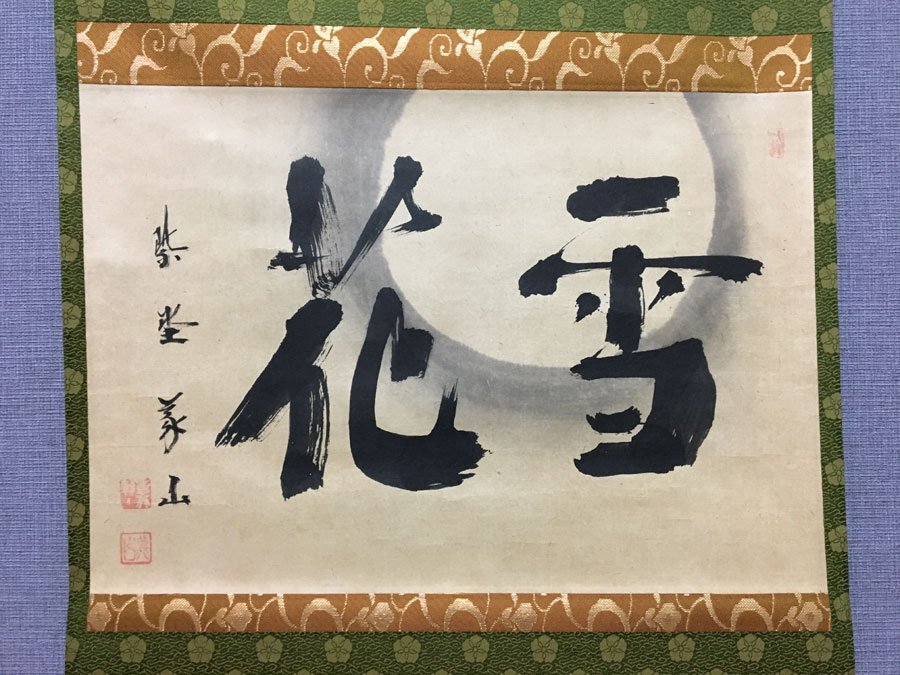 雪花
紫埜義山